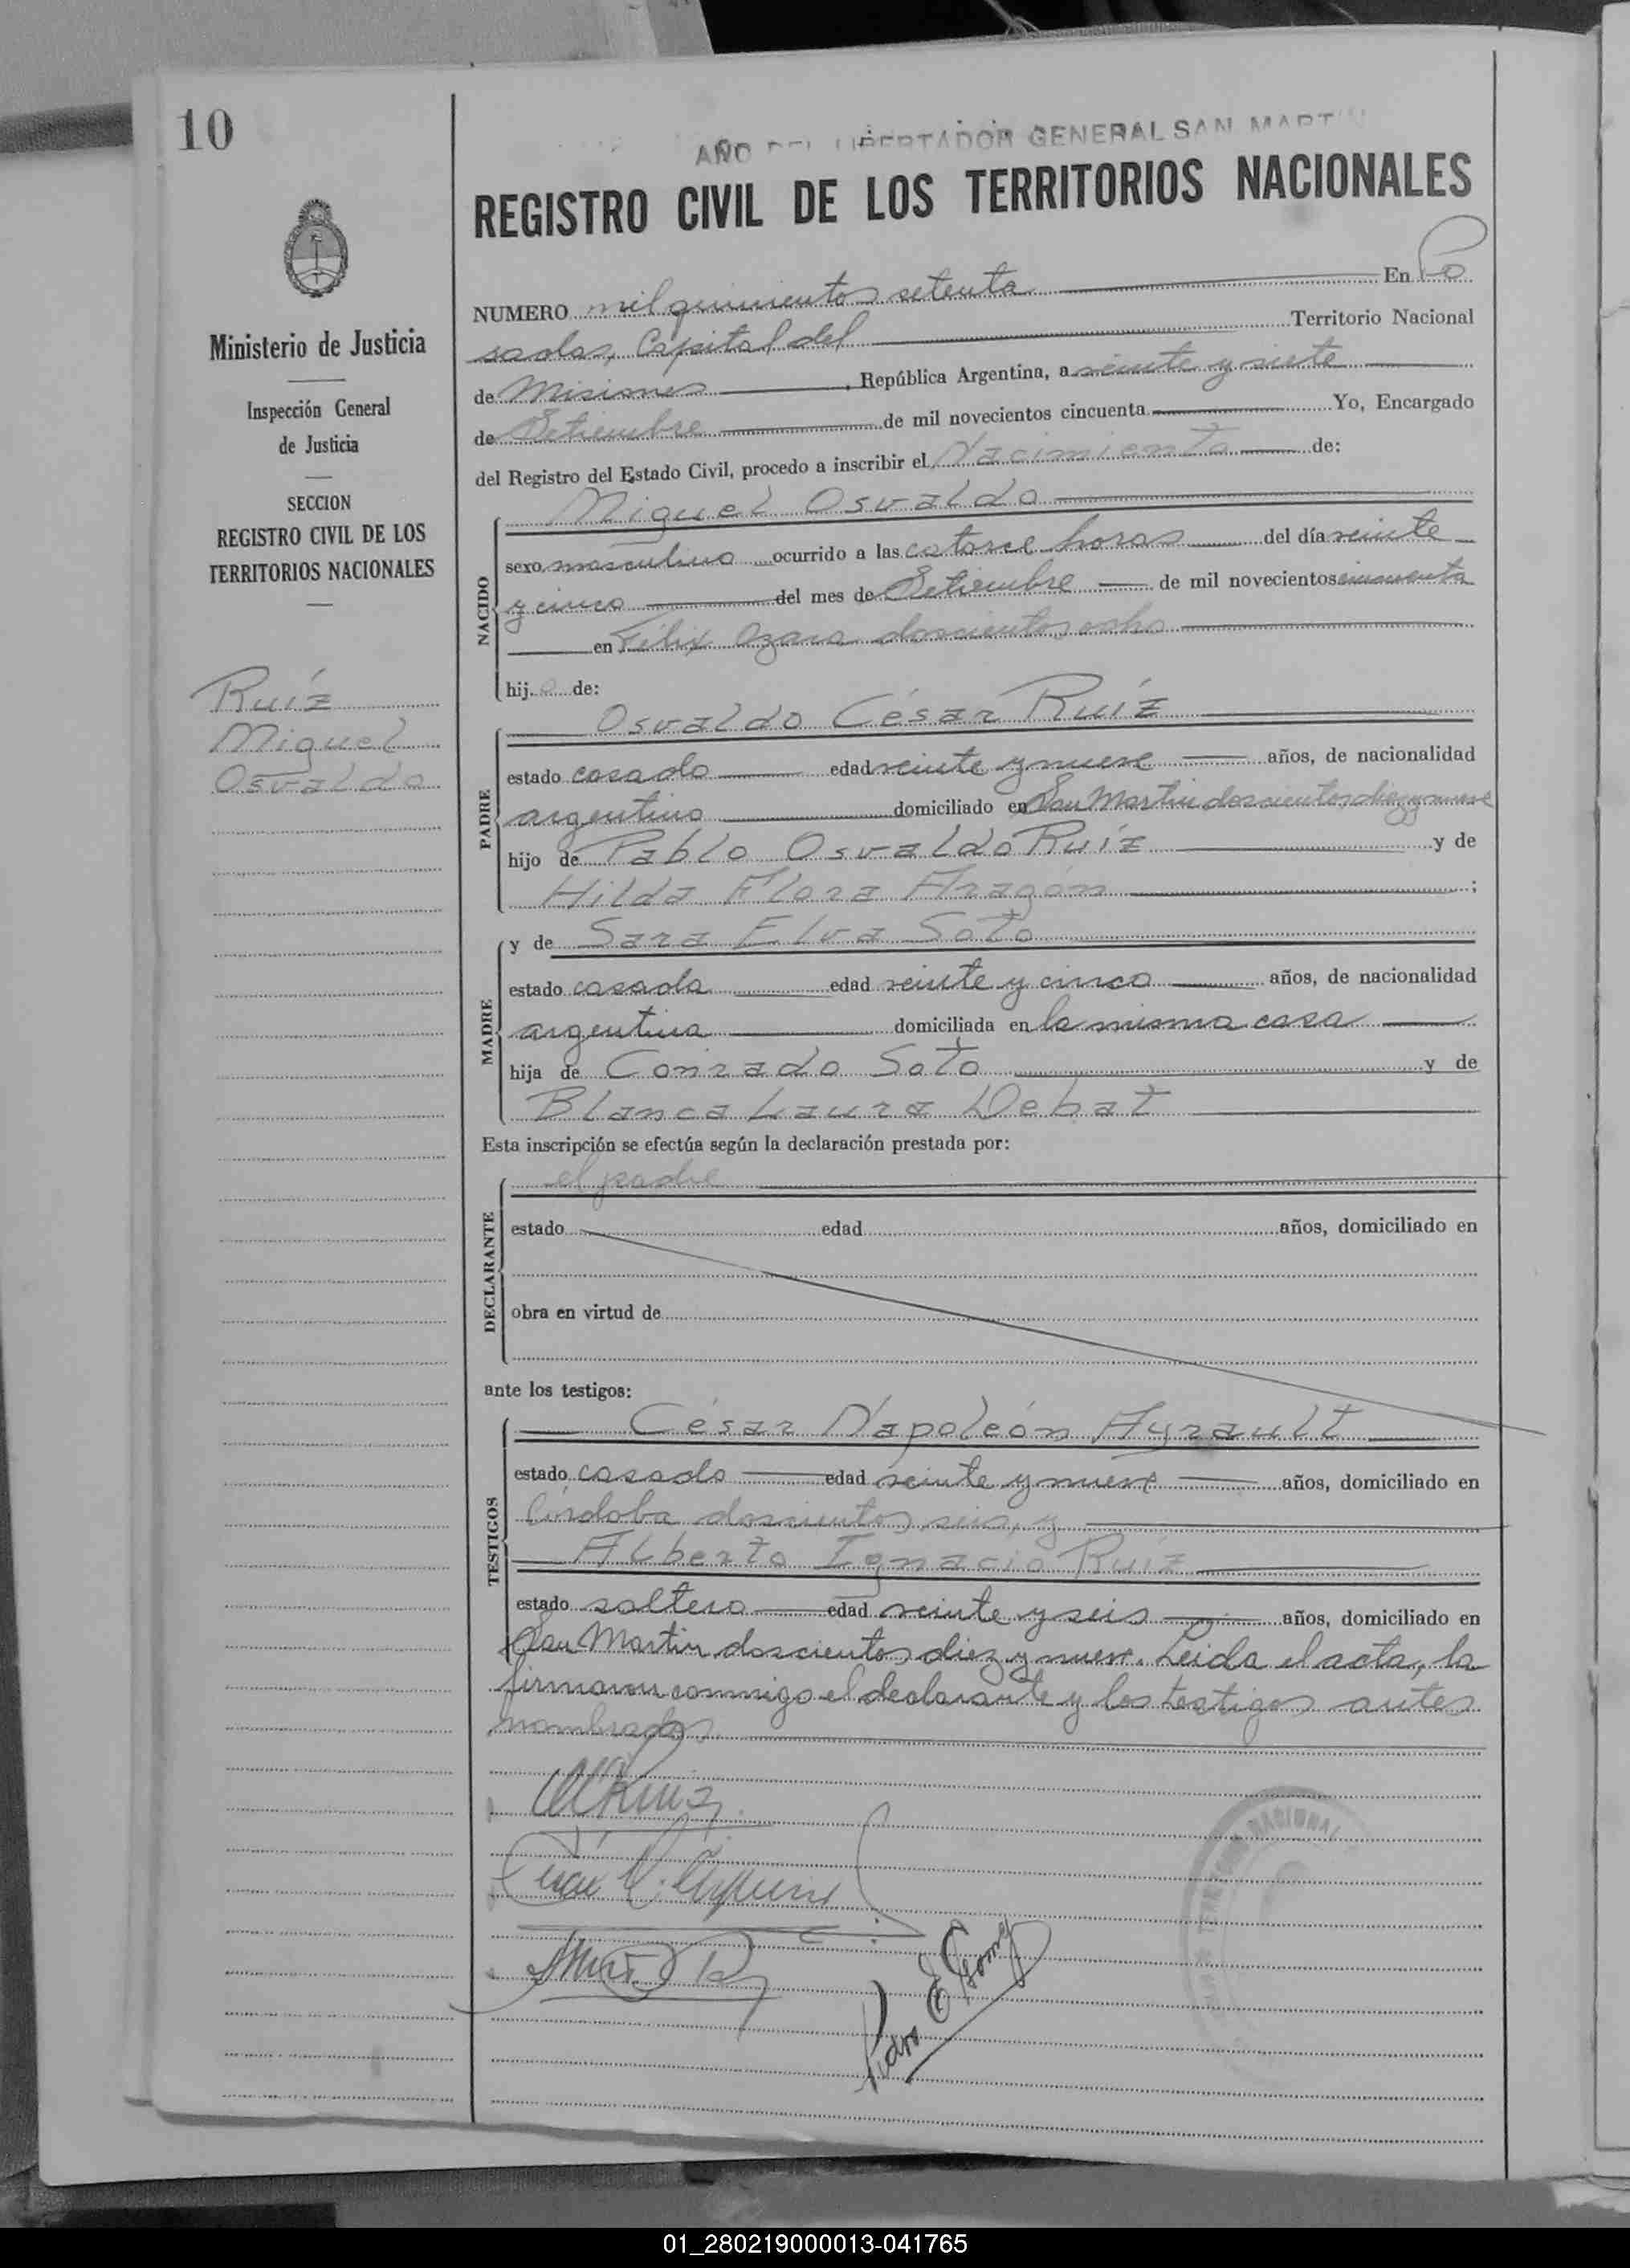 10
AÑO DEL LIBERTADOR GENERAL SAN MARTIN
REGISTRO CIVIL DE LOS TERRITORIOS NACIONALES
Ministerio de Justicia
Inspección General
de Justicia
SECCION
REGISTRO CIVIL DE LOS
TERRITORIOS NACIONALES
Ruíz
Miguel
Osvaldo
NUMERO mil quinientos setenta En Po
sadas, Capital del Territorio Nacional
de Misiones, República Argentina, a veinte y siete
de Setiembre de mil novecientos cincuenta Yo, Encargado
del Registro del Estado Civil, procedo a inscribir el Nacimiento de:
NACIDO
Miguel Osvaldo
sexo masculino ocurrido a las catorce horas del día veinte
y cinco del mes de Setiembre de mil novecientos cincuenta
en Félix Azara doscientos ocho
hijo de:
PADRE
Osvaldo César Ruíz
estado casado edad veinte y nueve años, de nacionalidad
argentino domiciliado en San Martin doscientos diez y nueve
hijo de Pablo Osvaldo Ruíz y de
Hilda Flora Aragón;
MADRE
y de Sara Elva Soto
estado casada edad veinte y cinco años, de nacionalidad
argentina domiciliada en la misma casa
hija de Conrado Soto y de
Blanca Laura Debat
Esta inscripción se efectúa según la declaración prestada por:
DECLARANTE
el padre
estado edad años, domiciliado en
obra en virtud de
ante los testigos:
TESTIGOS
César Napoleón Ayrault
estado casado edad veinte y nueve años, domiciliado en
Córdoba doscientos seis, y
Alberto Ignacio Ruíz
estado soltero edad veinte y seis años, domiciliado en
San Martin doscientos diez y nueve. Leida el acta, la
firmaron conmigo el declarante y los testigos antes
nombrados.
Ruiz
Pedro E Gomez
NACIONAL
01_280219000013-041765